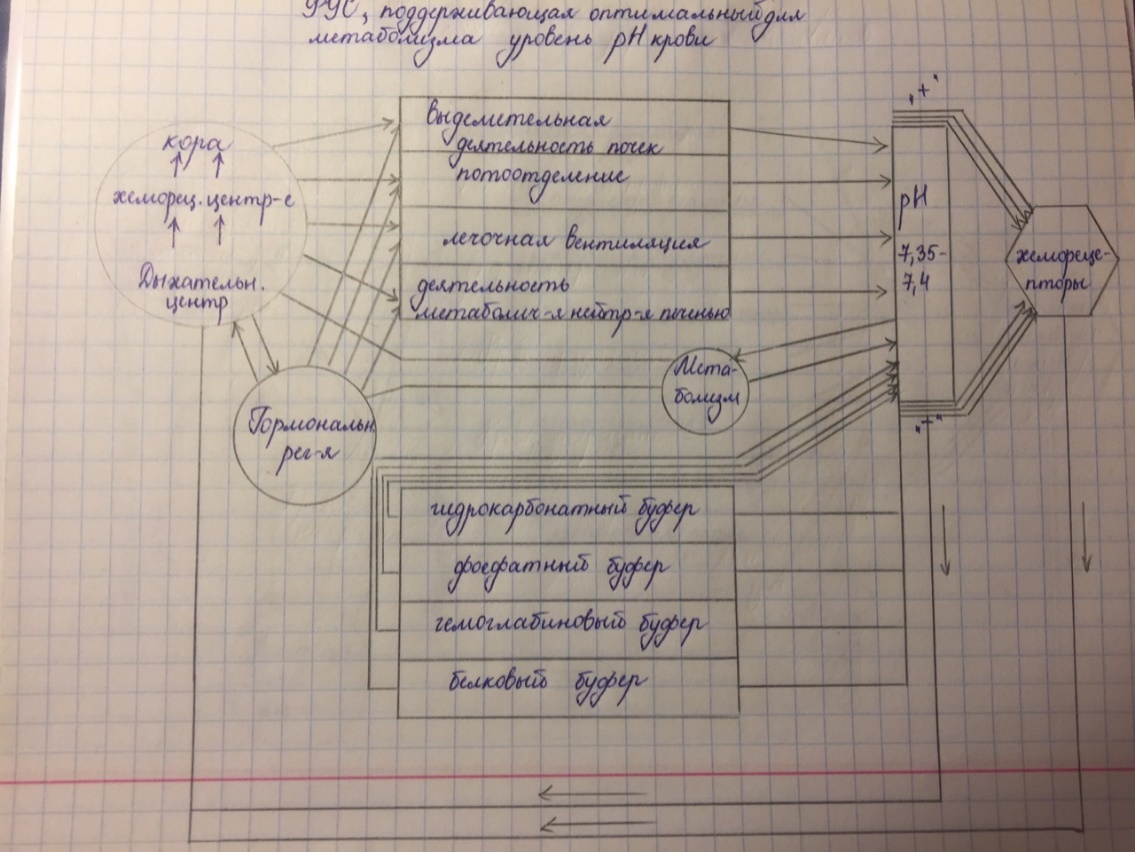 ФУС, поддерживающая оптимальный для
метаболизма уровень pH крови
„+“
кора
хеморец. центр-е
Дыхательн.
центр
Гормональн.
рег-я
Выделительная
деятельность почек
потоотделение
легочная вентиляция
деятельность
метаболич-я нейтр-я печенью
Мета-
болизм
pH
7,35-
7,4
хемореце-
пторы
„+“
гидрокарбонатный буфер
фосфатный буфер
гемоглабиновый буфер
белковый буфер